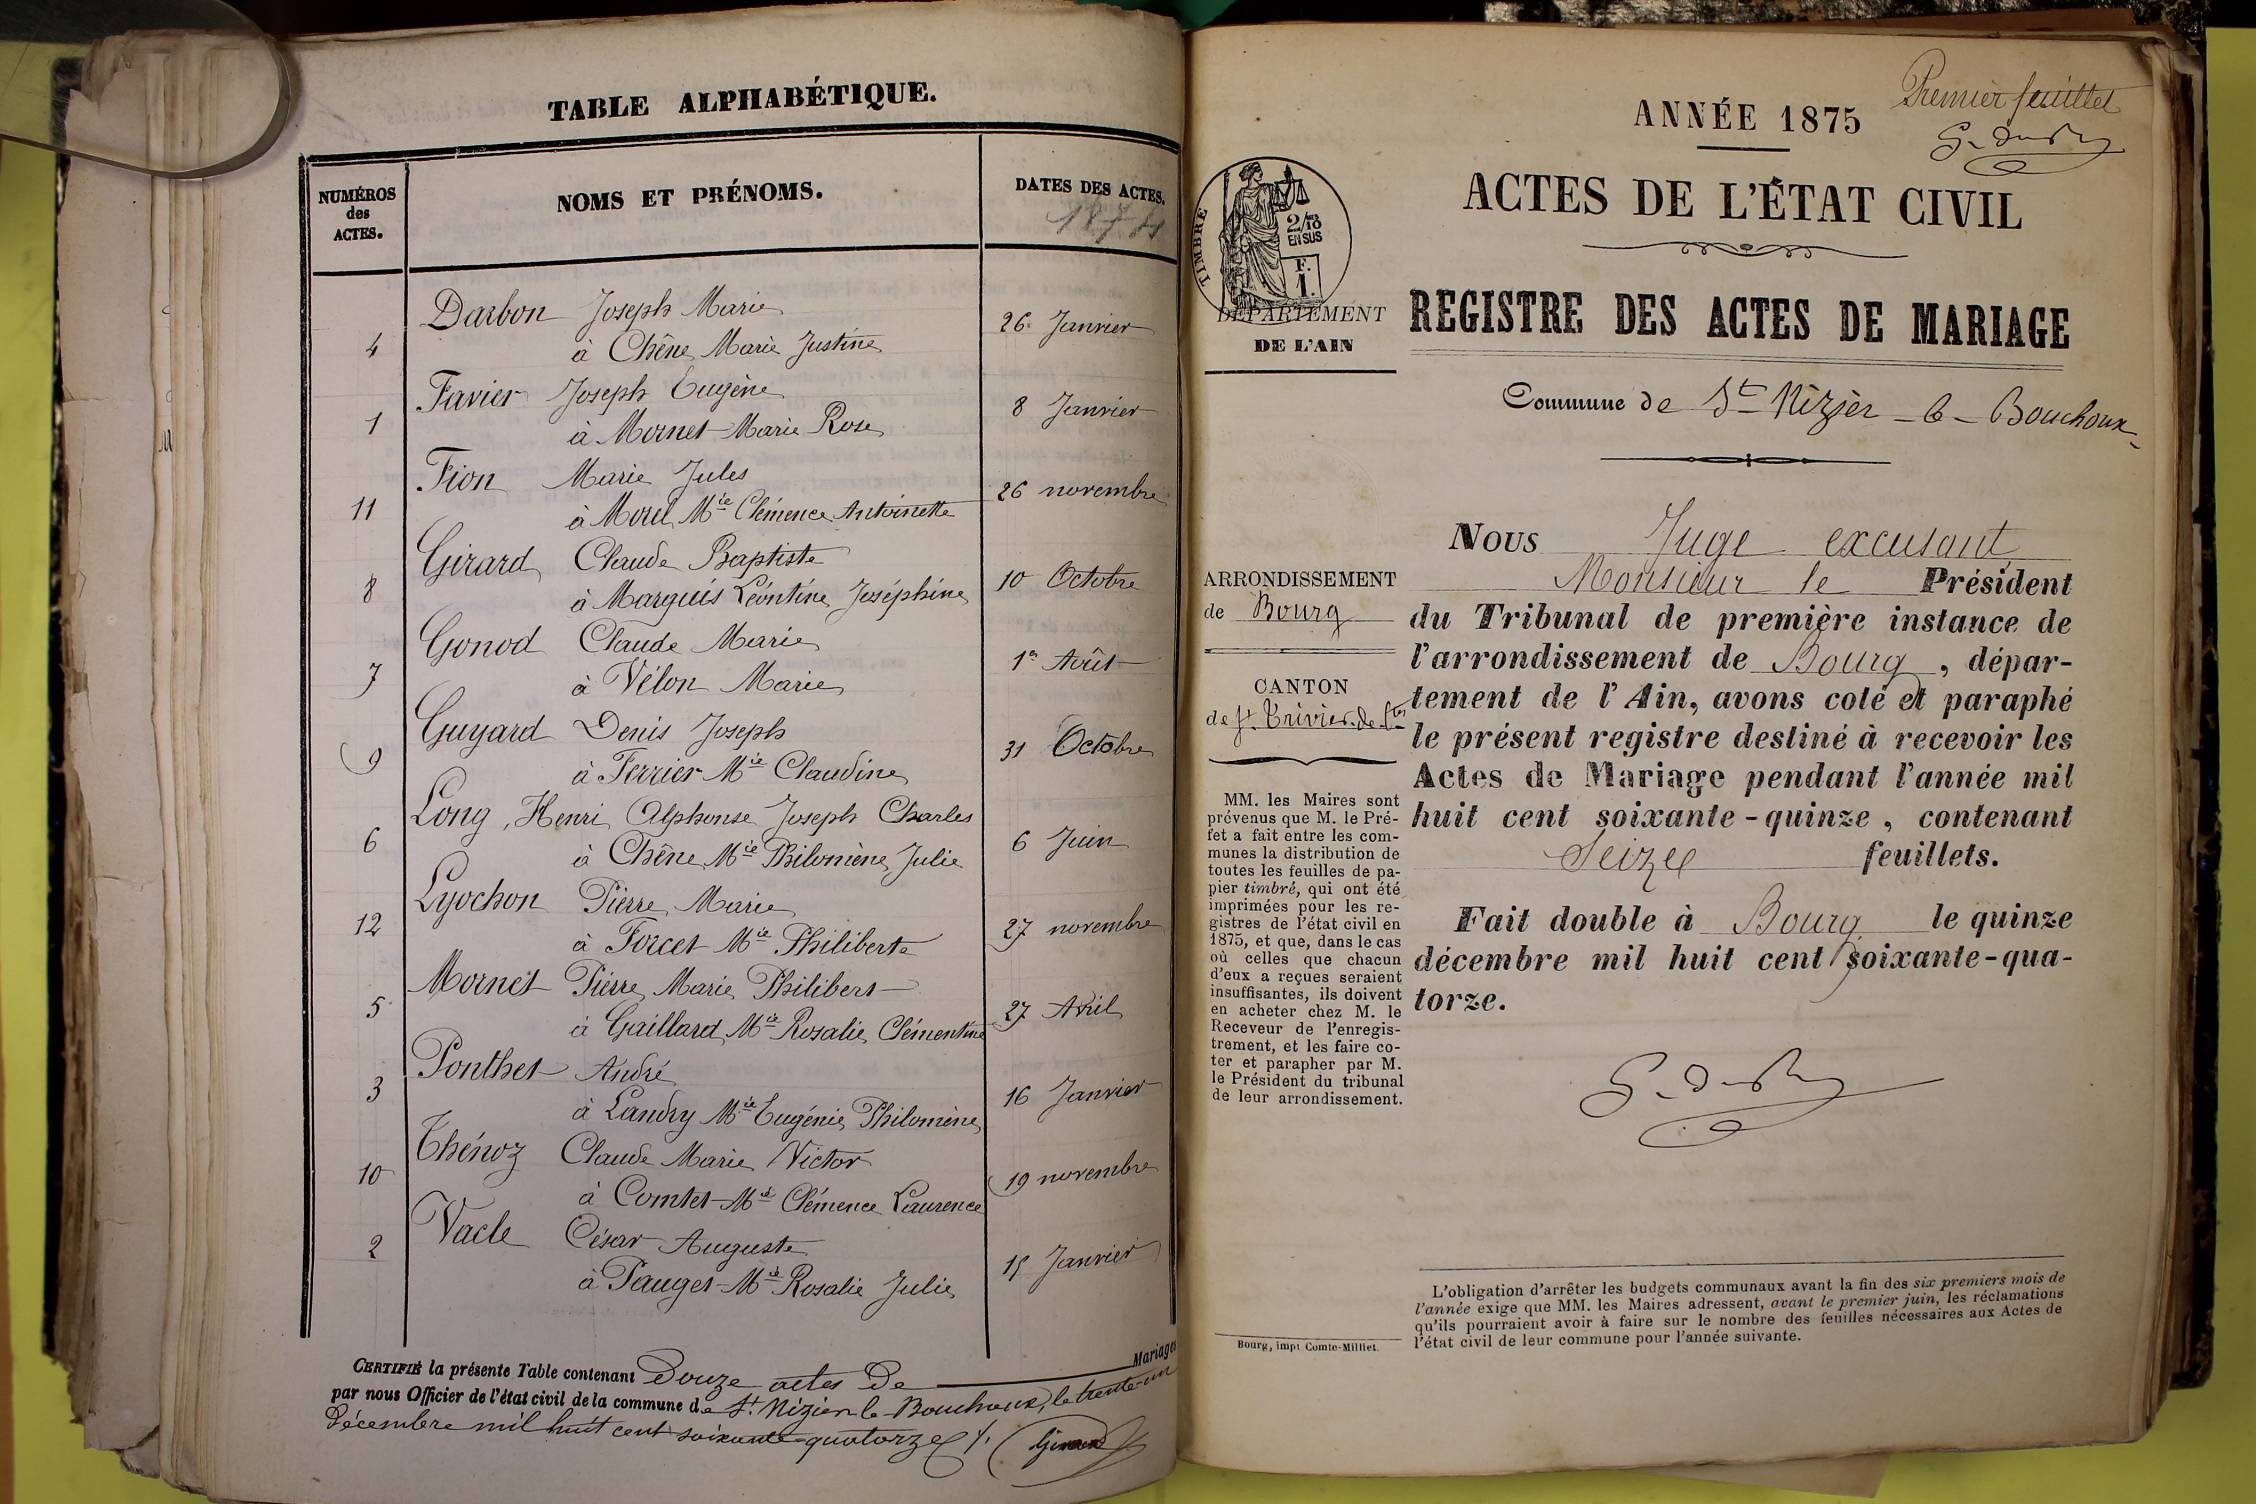 TABLE ALPHABÉTIQUE.
NUMÉROS
des
ACTES.
NOMS ET PRÉNOMS.
DATES DES ACTES.
1874
4 Darbon Joseph Marie 26 Janvier
à Chêne Marie Justine
1 Favier Joseph Eugène 8 Janvier
à Mornet Marie Rose
11 Fion Marie Jules 26 novembre
à Morel Mie Clémence Antoinette
8 Girard Claude Baptiste 10 Octobre
à Marguis Léontine Joséphine
7 Gonod Claude Marie 1er Août
à Vélon Marie
9 Guyard Denis Joseph 31 Octobre
à Ferrier Mie Claudine
6 Long, Henri Alphonse Joseph Charles 6 Juin
à Chêne Mie Philomène Julie
12 Lyochon Pierre Marie 27 novembre
à Forcet Mie Philiberte
5 Mornet Pierre Marie Philibert 27 Avril
à Gaillard Mie Rosalie Clémentine
3 Ponthet André 16 Janvier
à Landry Mie Eugénie Philomène
10 Thénoz Claude Marie Victor 19 novembre
à Comtet Mie Clémence Laurence
2 Vacle César Auguste 15 Janvier
à Pauget Mie Rosalie Julie
CERTIFIÉ la présente Table contenant Douze actes De Mariages
par nous Officier de l'état civil de la commune de St. Nizier le Bouchoux, le trente-un
Décembre mil huit cent soixante-quatorze
Premier feuillet
ANNÉE 1875
ACTES DE L'ÉTAT CIVIL
TIMBRE
2/10
EN SUS
F.
1.
DÉPARTEMENT
DE L'AIN
REGISTRE DES ACTES DE MARIAGE
Commune de St Nizier-le-Bouchoux
ARRONDISSEMENT
de Bourg
CANTON
de St. Trivier-de-Ctes
MM. les Maires sont
prévenus que M. le Pré-
fet a fait entre les com-
munes la distribution de
toutes les feuilles de pa-
pier timbré, qui ont été
imprimées pour les re-
gistres de l'état civil en
1875, et que, dans le cas
où celles que chacun
d'eux a reçues seraient
insuffisantes, ils doivent
en acheter chez M. le
Receveur de l'enregis-
trement, et les faire co-
ter et parapher par M.
le Président du tribunal
de leur arrondissement.
Bourg, impr Comte-Milliet.
NOUS Juge excusant
Monsieur le Président
du Tribunal de première instance de
l'arrondissement de Bourg, dépar-
tement de l'Ain, avons coté et paraphé
le présent registre destiné à recevoir les
Actes de Mariage pendant l'année mil
huit cent soixante-quinze, contenant
Seize feuillets.
Fait double à Bourg le quinze
décembre mil huit cent soixante-qua-
torze.
L'obligation d'arrêter les budgets communaux avant la fin des six premiers mois de
l'année exige que MM. les Maires adressent, avant le premier juin, les réclamations
qu'ils pourraient avoir à faire sur le nombre des feuilles nécessaires aux Actes de
l'état civil de leur commune pour l'année suivante.